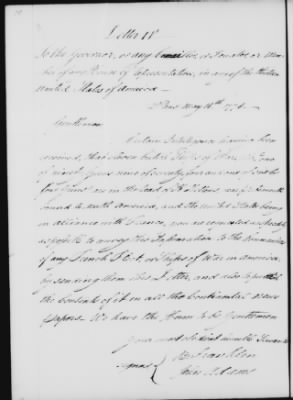 Letter 18
To the Governor, or any Councillor, or Senator or Mem-
ber of any House of Representatives, in any of the thirteen
United States of America
Passi May 18th 1778.
Gentlemen
Certain Intelligence having been
received, that eleven british Ships of War, one
of ninety Guns, nine of seventy four and one of sixty
four Guns are in the Road of St Helens near Portsmouth
bound to north America, and the united States being
in alliance with France, you are requested as speedily
as possible to convey this Information to the Commander
of any French Fleet or Ships of War in America,
by sending them this Letter, and also to publish
the Contents of it in all the Continental News
papers. We have the Honor to be Gentlemen
your most obedient humble Servants
signed { B. Franklin
John Adams